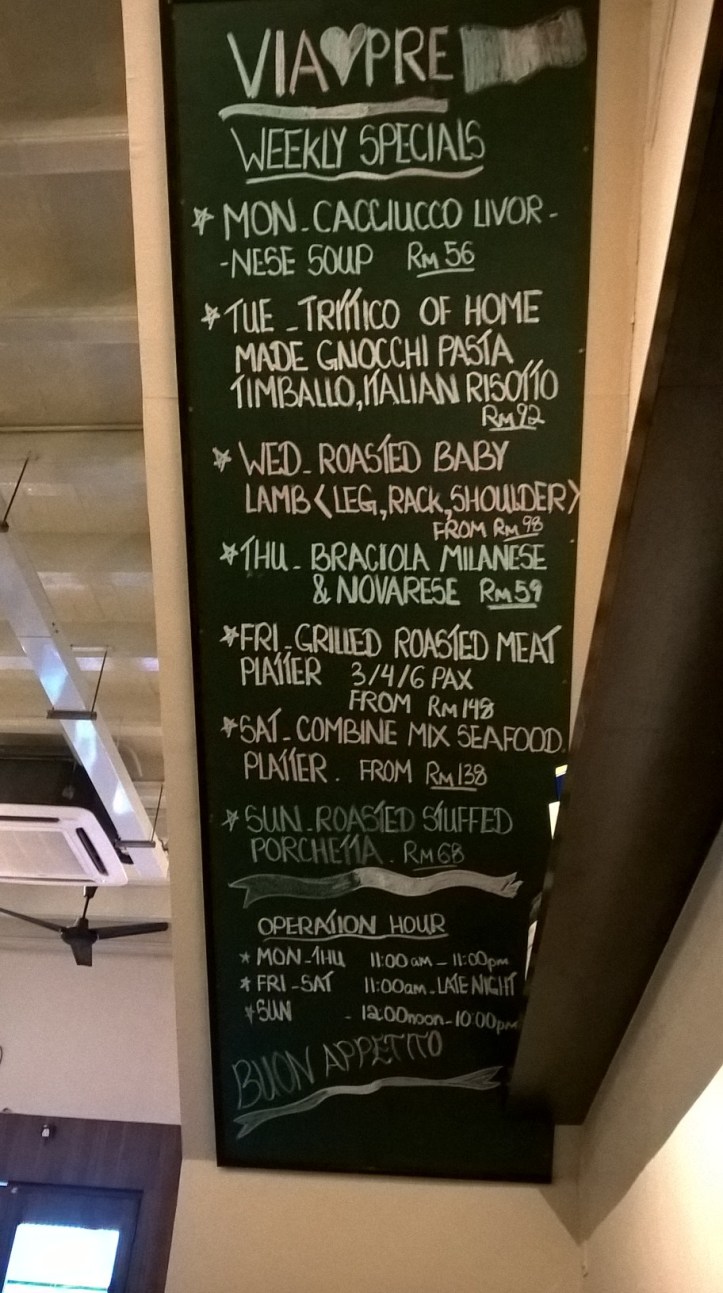 VIA♥PRE
WEEKLY SPECIALS
☆ MON - CACCIUCCO LIVOR -
-NESE SOUP RM 56
☆ TUE - TRITTICO OF HOME
MADE GNOCCHI PASTA
TIMBALLO, ITALIAN RISOTTO
RM 92
☆ WED - ROASTED BABY
LAMB <LEG, RACK, SHOULDER>
FROM RM 98
☆ THU - BRACIOLA MILANESE
& NOVARESE RM 59
☆ FRI - GRILLED ROASTED MEAT
PLATTER 3/4/6 PAX
FROM RM 148
☆ SAT - COMBINE MIX SEAFOOD
PLATTER . FROM RM 138
☆ SUN - ROASTED STUFFED
PORCHETTA . RM 68
OPERATION HOUR
* MON - THU 11:00 am - 11:00pm
* FRI - SAT 11:00am - LATE NIGHT
* SUN - 12:00noon - 10:00pm
BUON APPETITO